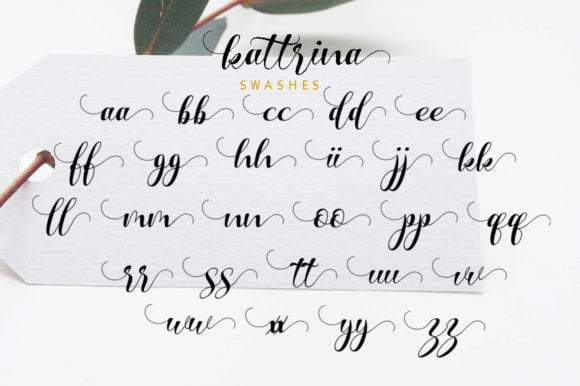 kattrina
SWASHES
aa bb cc dd ee
ff gg hh ii jj kk
ll mm nn oo pp qq
rr ss tt uu vv
ww xx yy zz